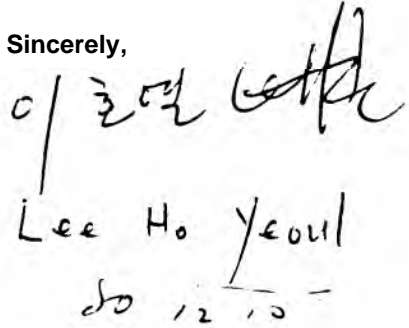 Sincerely,
이호열
Lee Ho Yeoul